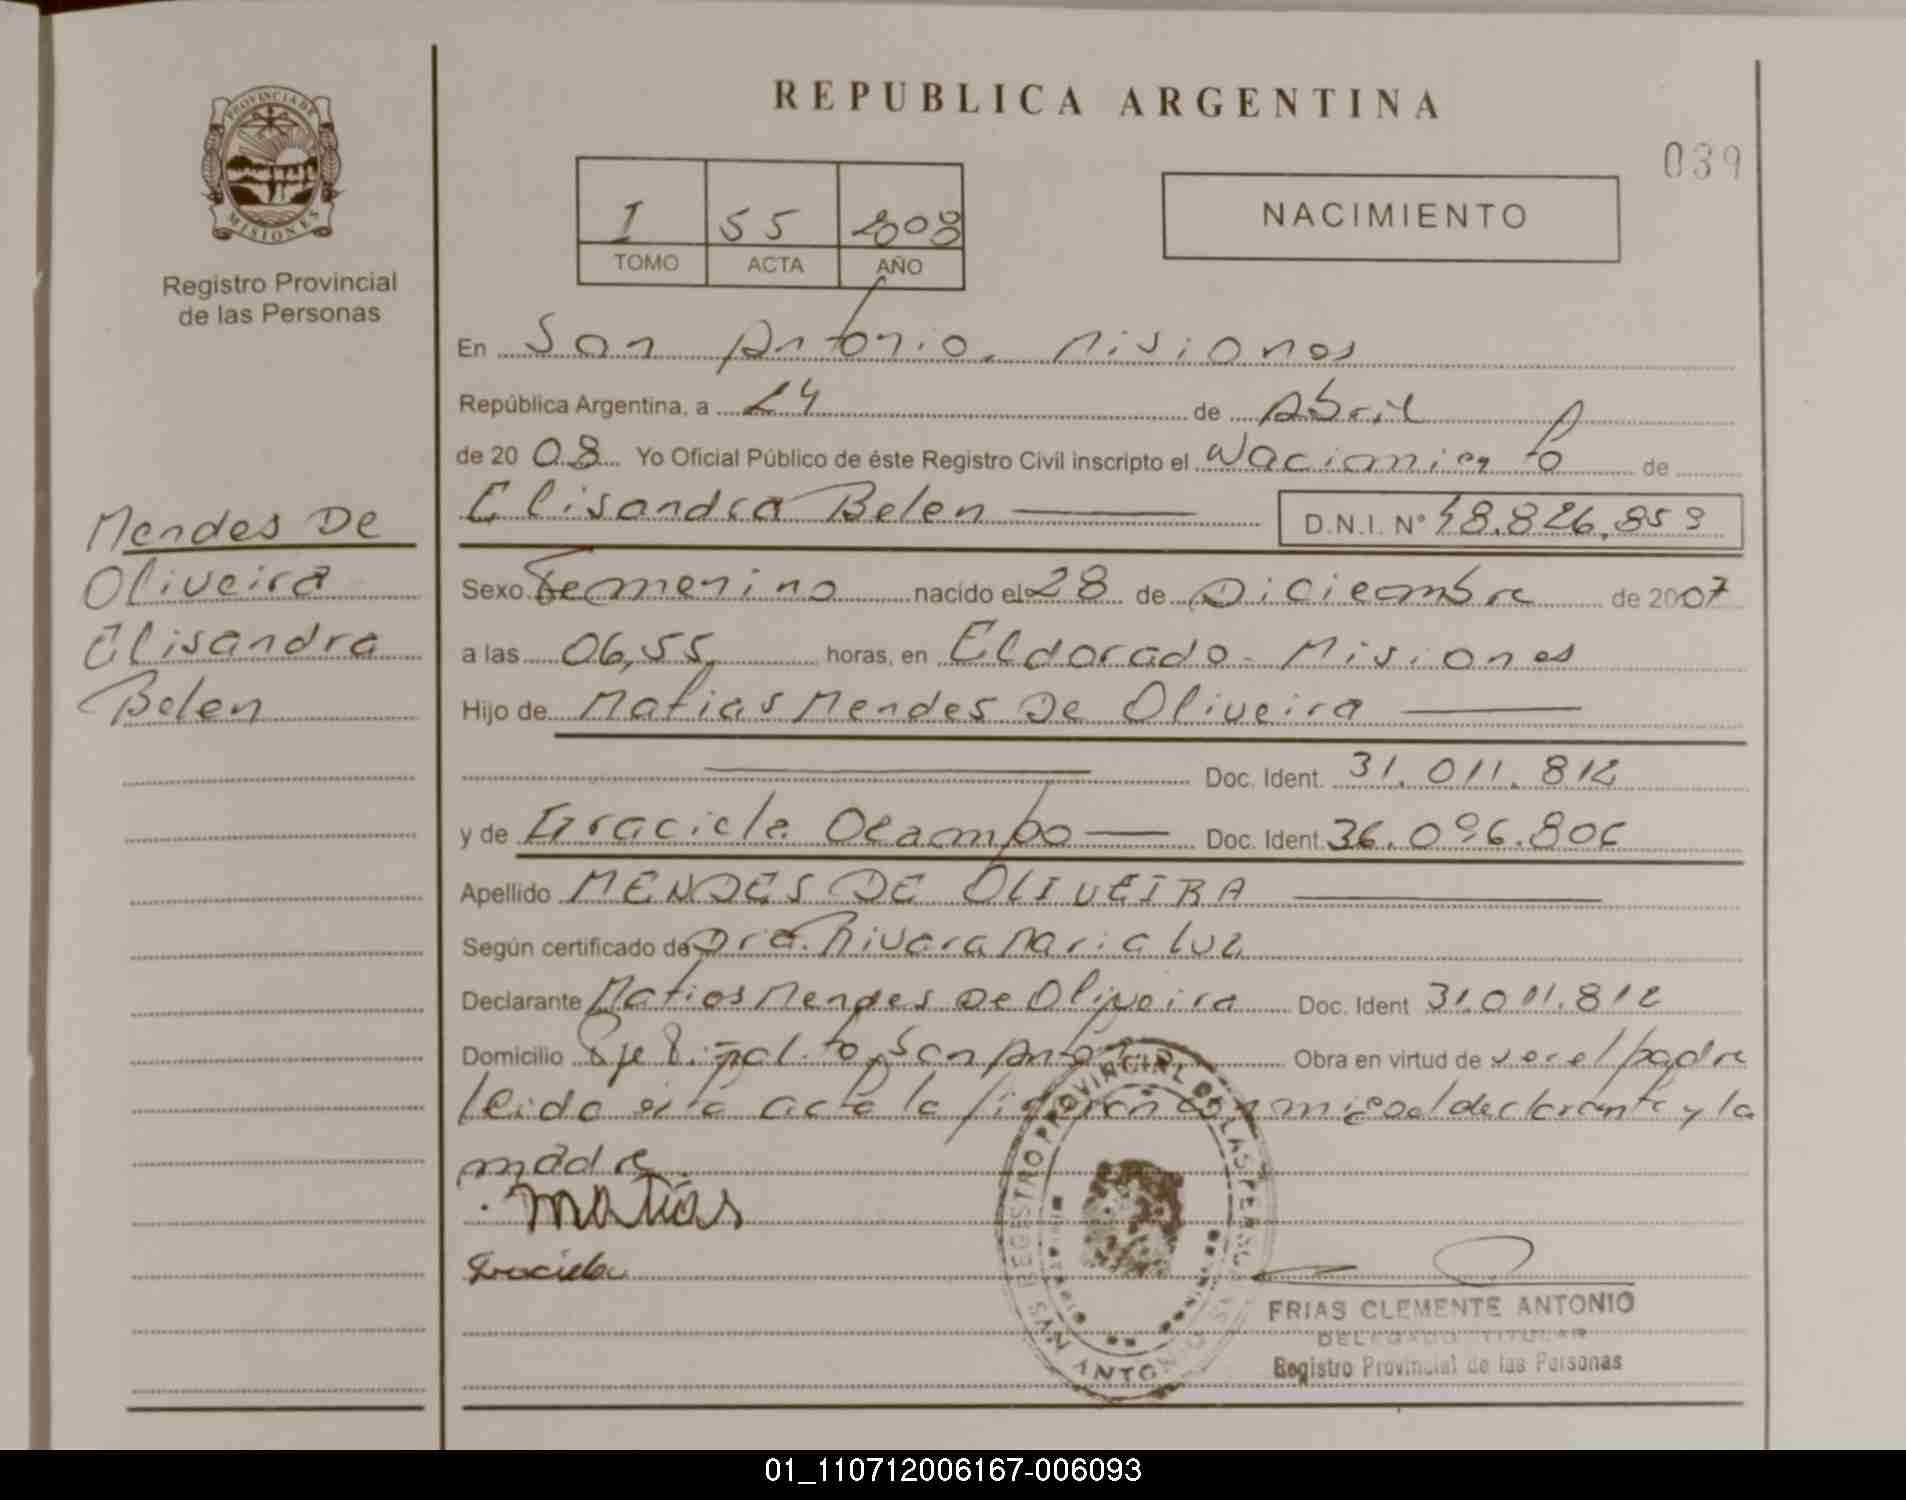 REPUBLICA ARGENTINA
039
PROVINCIA DE
MISIONES
Registro Provincial
de las Personas
I 55 2008
TOMO ACTA AÑO
NACIMIENTO
En San Antonio. Misiones
República Argentina, a 24 de Abril
de 20 08 Yo Oficial Público de éste Registro Civil inscripto el Nacimiento de
Elisandra Belen D.N.I. Nº 48.826.859
Mendes De
Oliveira
Elisandra
Belen
Sexo Femenino nacido el 28 de Diciembre de 2007
a las 06,55 horas, en Eldorado - Misiones
Hijo de Matias Mendes De Oliveira
Doc. Ident. 31.011.812
y de Graciela Ocampo Doc. Ident. 36.096.806
Apellido MENDES DE OLIVEIRA
Según certificado de Dra. Rivera Maria Luz
Declarante Matias Mendes De Oliveira Doc. Ident 31.011.812
Domicilio Pje Piñalito San Anto Obra en virtud de ser el padre
leida esta acta la firman conmigo el declarante y la
madre.
Matias
Graciela
REGISTRO PROVINCIAL DE LAS PERSONAS
SAN ANTONIO
FRIAS CLEMENTE ANTONIO
DELEGADO TITULAR
Registro Provincial de las Personas
01_110712006167-006093